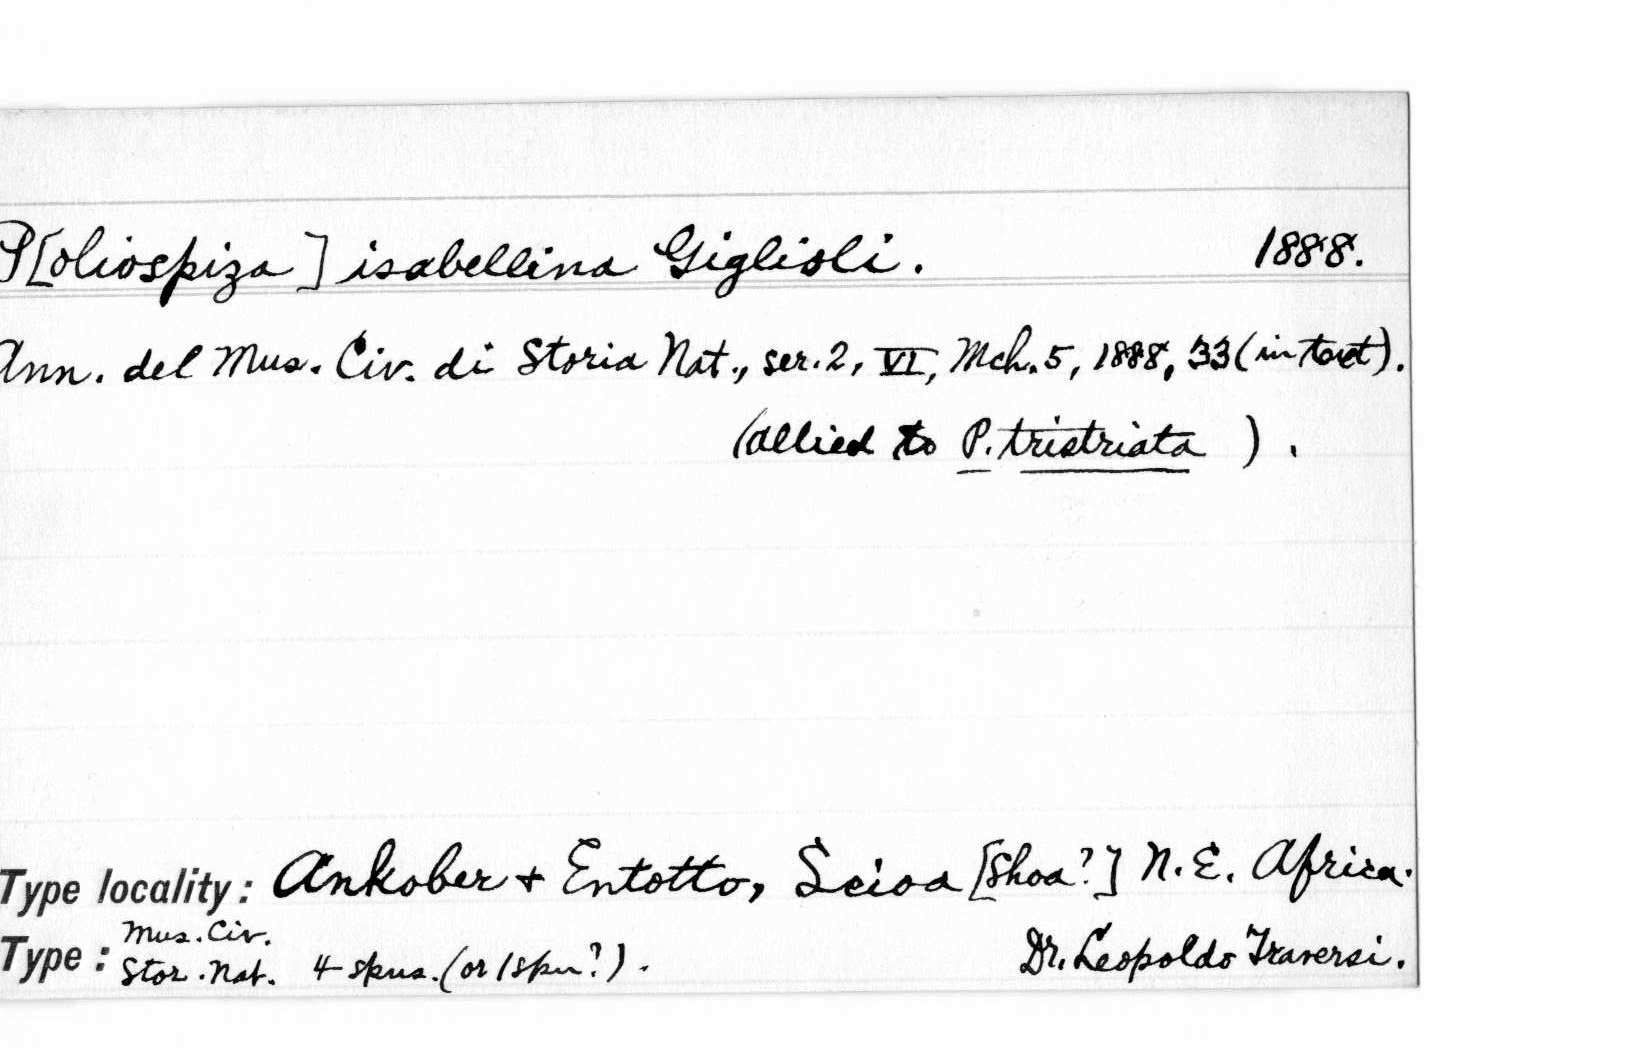 P[oliospiza] isabellina Giglioli. 1888.
Ann. del Mus. Civ. di Storia Nat., ser.2, VI, Mch.5, 1888, 33 (in text).
(allied to P. tristriata).
Type locality: Ankober + Entotto, Scioa [Shoa?] N.E. Africa.
Type: Mus. Civ. Stor. Nat. 4 spns. (or 1 spn?). Dr. Leopoldo Traversi.